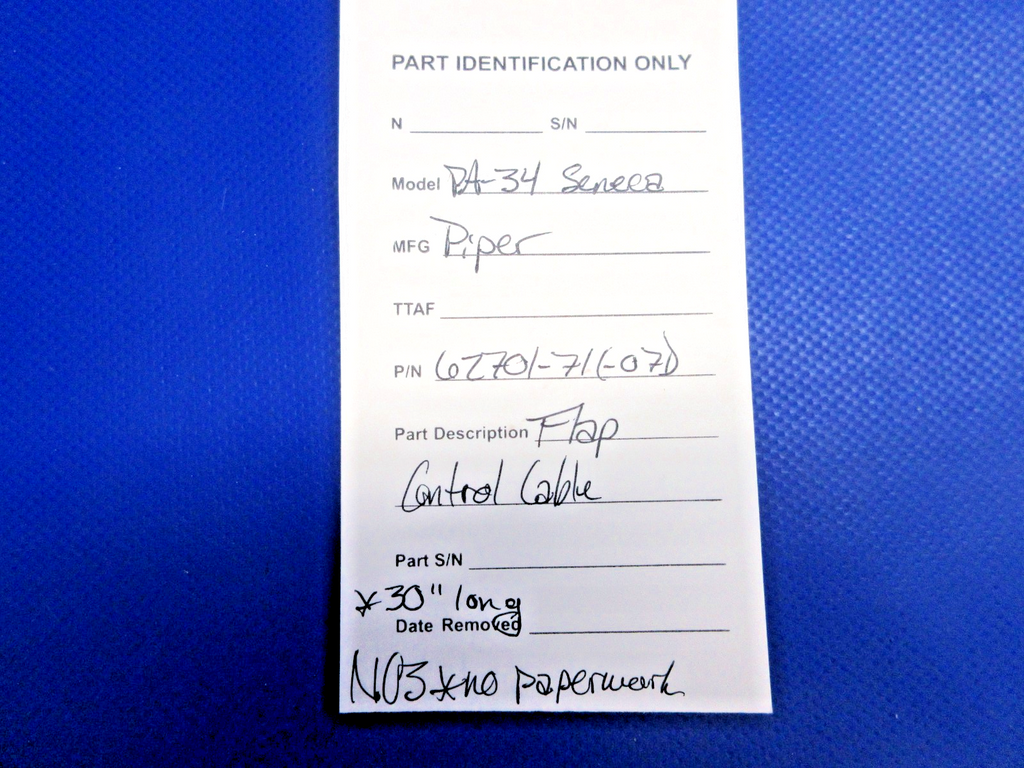 PART IDENTIFICATION ONLY
N S/N
Model PA-34 Seneca
MFG Piper
TTAF
P/N 62701-71(-071)
Part Description Flap
Control Cable
Part S/N
*30" long
Date Removed
*no paperwork